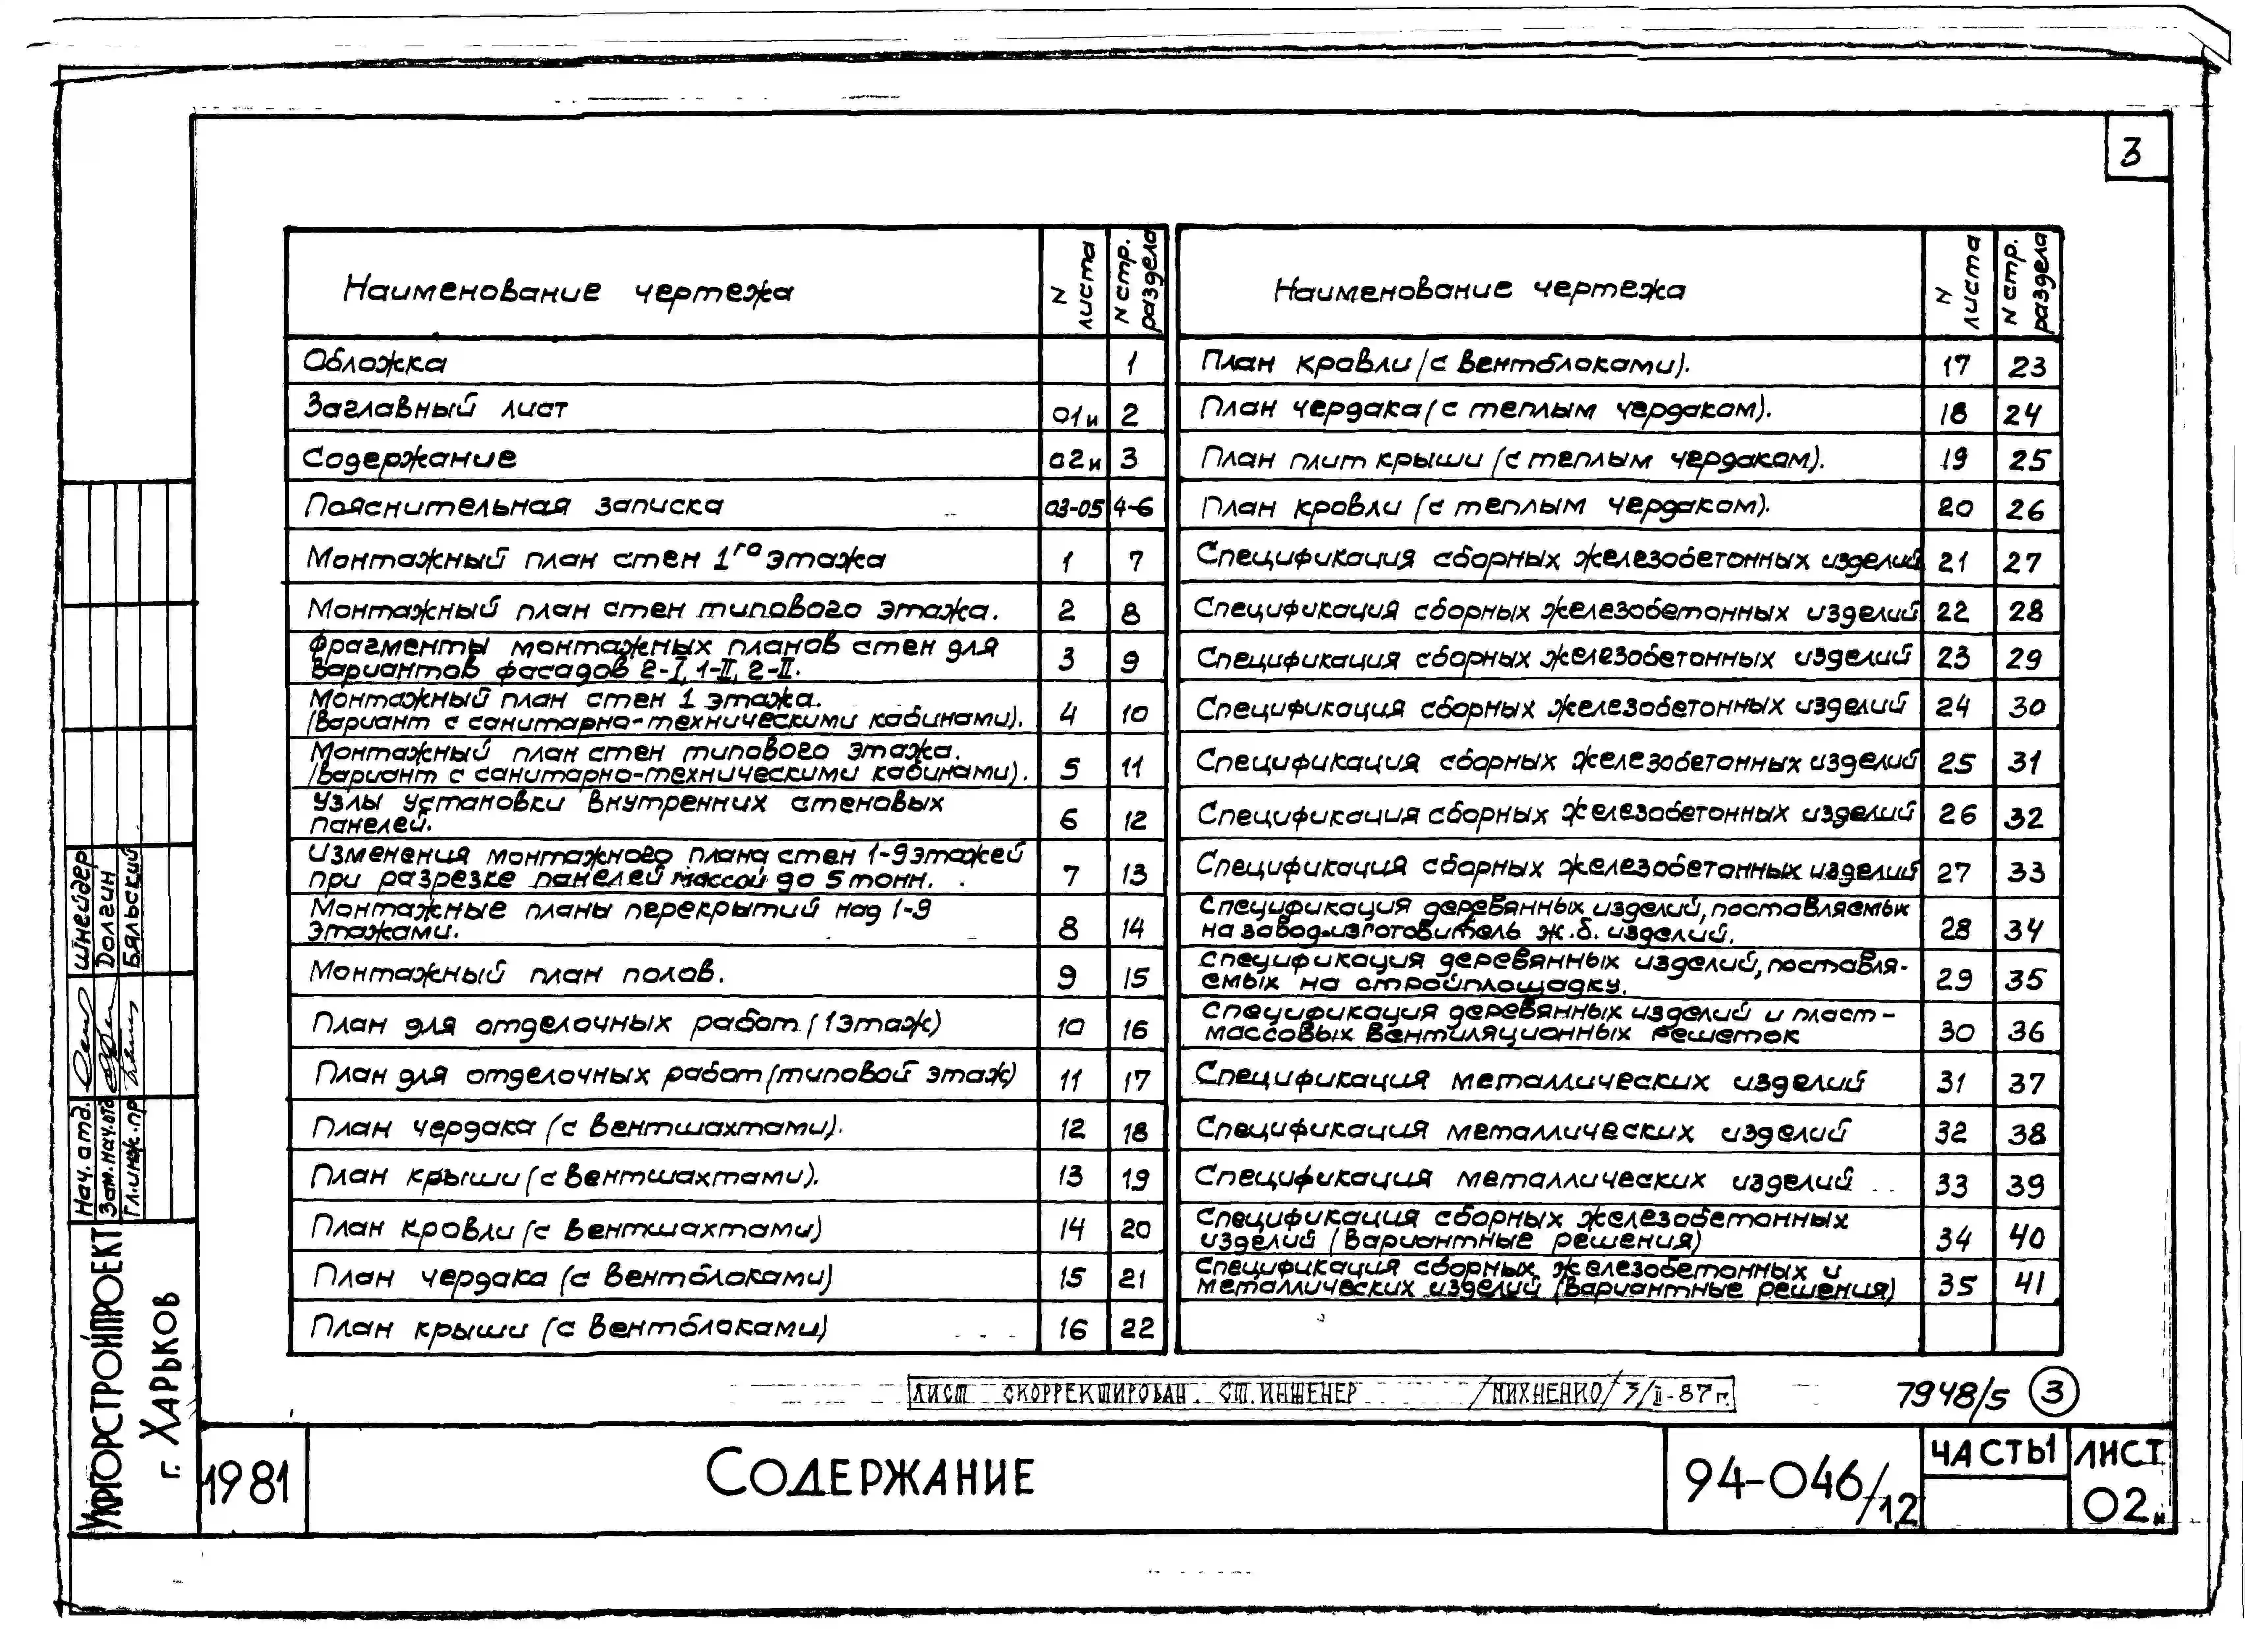 3
Наименование чертежа
N листа
N стр. раздела
Обложка 1
Заглавный лист 01и 2
Содержание 02и 3
Пояснительная записка 03-05 4-6
Монтажный план стен 1го этажа 1 7
Монтажный план стен типового этажа. 2 8
Фрагменты монтажных планов стен для
вариантов фасадов 2-I, 1-II, 2-II. 3 9
Монтажный план стен 1 этажа.
(вариант с санитарно-техническими кабинами). 4 10
Монтажный план стен типового этажа.
(вариант с санитарно-техническими кабинами). 5 11
Узлы установки внутренних стеновых
панелей. 6 12
Изменения монтажного плана стен 1-9 этажей
при разрезке панелей массой до 5 тонн. 7 13
Монтажные планы перекрытий над 1-9
этажами. 8 14
Монтажный план полов. 9 15
План для отделочных работ (1 этаж) 10 16
План для отделочных работ (типовой этаж) 11 17
План чердака (с вентшахтами). 12 18
План крыши (с вентшахтами). 13 19
План кровли (с вентшахтами) 14 20
План чердака (с вентблоками) 15 21
План крыши (с вентблоками) 16 22
Наименование чертежа
N листа
N стр. раздела
План кровли (с вентблоками). 17 23
План чердака (с теплым чердаком). 18 24
План плит крыши (с теплым чердаком). 19 25
План кровли (с теплым чердаком). 20 26
Спецификация сборных железобетонных изделий 21 27
Спецификация сборных железобетонных изделий 22 28
Спецификация сборных железобетонных изделий 23 29
Спецификация сборных железобетонных изделий 24 30
Спецификация сборных железобетонных изделий 25 31
Спецификация сборных железобетонных изделий 26 32
Спецификация сборных железобетонных изделий 27 33
Спецификация деревянных изделий, поставляемых
на завод-изготовитель ж.б. изделий. 28 34
Спецификация деревянных изделий, поставля-
емых на стройплощадку. 29 35
Спецификация деревянных изделий и пласт-
массовых вентиляционных решеток 30 36
Спецификация металлических изделий 31 37
Спецификация металлических изделий 32 38
Спецификация металлических изделий 33 39
Спецификация сборных железобетонных
изделий (вариантные решения) 34 40
Спецификация сборных железобетонных и
металлических изделий (вариантные решения) 35 41
ЛИСТ СКОРРЕКТИРОВАН. СТ. ИНЖЕНЕР /МИХНЕНКО/ 3/II-87 г.
7948/5 3
1981
СОДЕРЖАНИЕ
94-046/12
ЧАСТЬ 1
ЛИСТ
02и
УКРГОРСТРОЙПРОЕКТ
г. ХАРЬКОВ
Нач. отд. Шнейдер
Зам. нач. отд Долгин
Гл. инж. пр. Бяльский